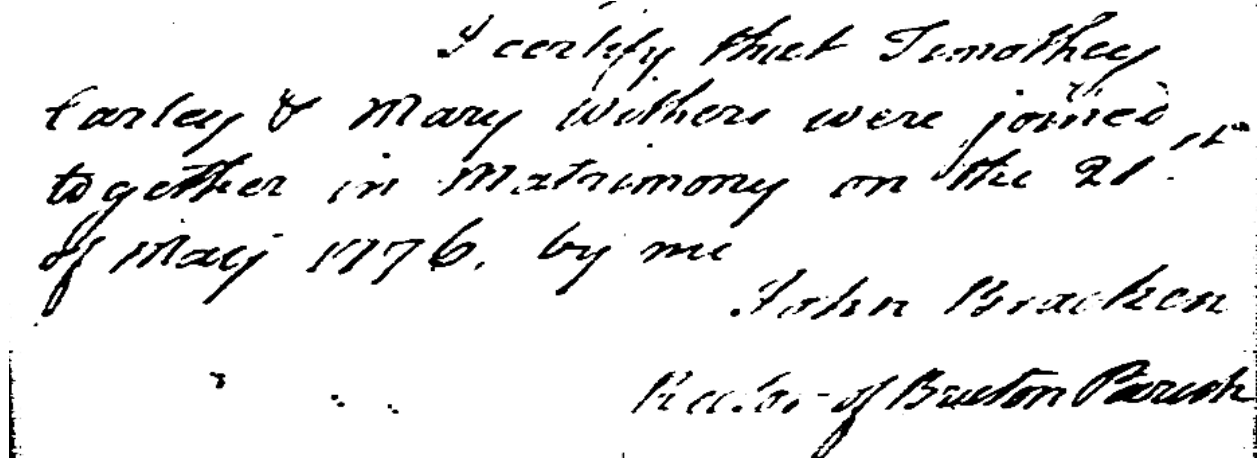 I certify that Timothey
Earley & Mary Withers were joined
together in Matrimony on the 21st
of May 1776. by me
John Bracken
Rector of Bruton Parish